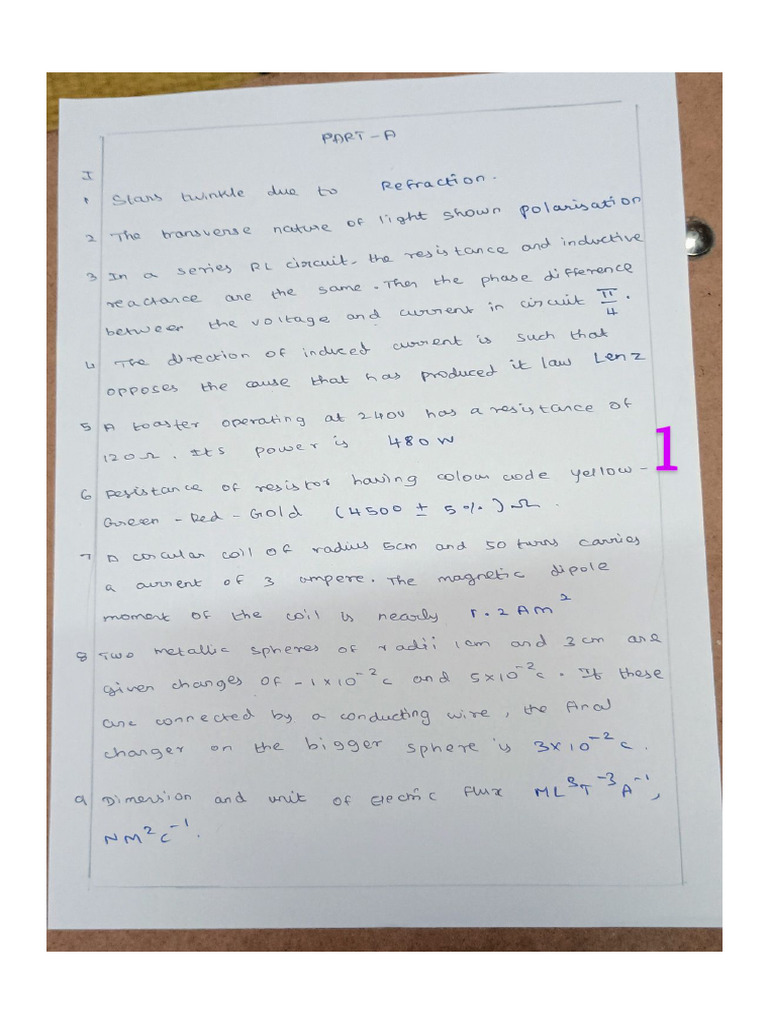 PART-A
I
1 Stars twinkle due to Refraction.
2 The transverse nature of light shown polarisation
3 In a series RL circuit. the resistance and inductive
reactance are the same. Then the phase difference
between the voltage and current in circuit π/4.
4 The direction of induced current is such that
opposes the cause that has produced it law Lenz
5 A toaster operating at 240V has a resistance of
120Ω. Its power is 480W
1
6 Resistance of resistor having colour code yellow-
Green-Red-Gold (4500 ± 5%)Ω.
7 A circular coil of radius 5cm and 50 turns carries
a current of 3 ampere. The magnetic dipole
moment of the coil is nearly 1.2 Am²
8 Two metallic spheres of radii 1cm and 3cm are
given changes of -1×10⁻²c and 5×10⁻²c. If these
are connected by a conducting wire, the final
changer on the bigger sphere is 3×10⁻²c.
9 Dimension and unit of Electric flux ML³T⁻³A⁻¹,
NM²C⁻¹.